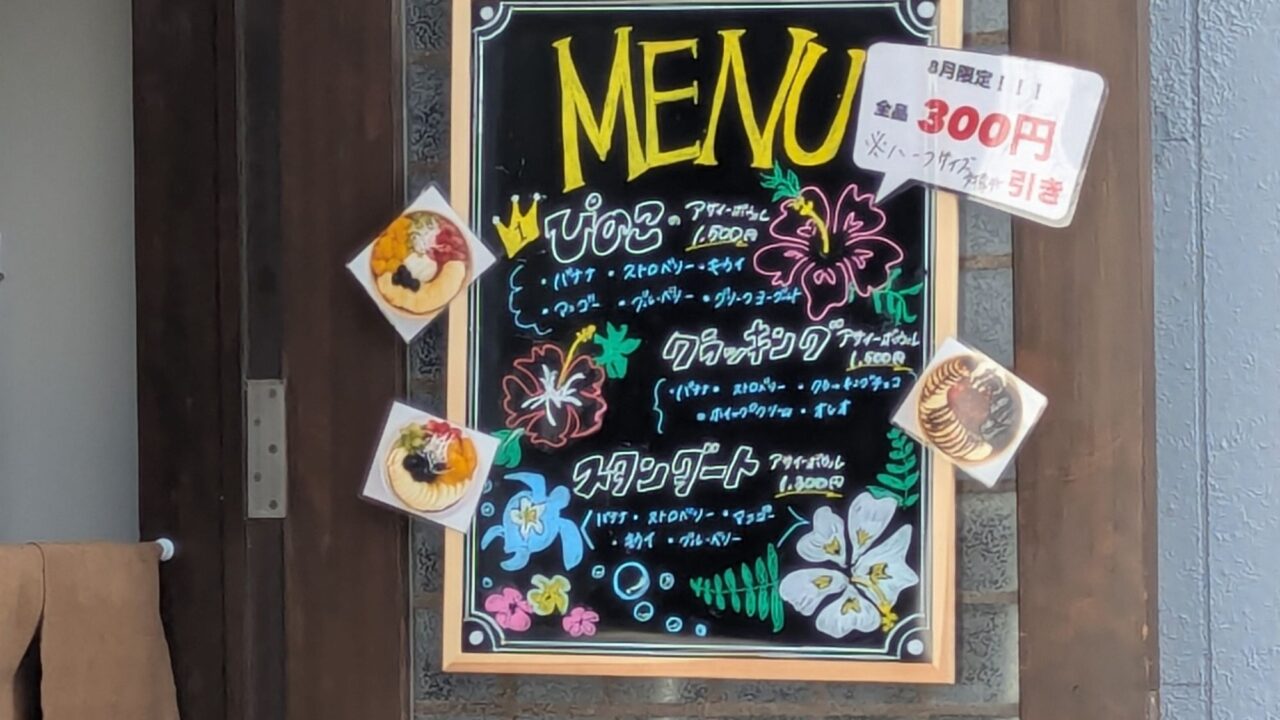 MENU
8月限定！！！
全品 300円
※ハーフサイズ
対象外 引き
1
ぴのこの アサイーボウル
1,500円
・バナナ ・ストロベリー ・キウイ
・マンゴー ・ブルーベリー ・グリークヨーグルト
クラッキング アサイーボウル
1,500円
・バナナ・ ストロベリー ・クラッキングチョコ
・ホイップクリーム ・オレオ
スタンダート アサイーボウル
1,300円
バナナ・ストロベリー ・マンゴー
・キウイ ・ブルーベリー